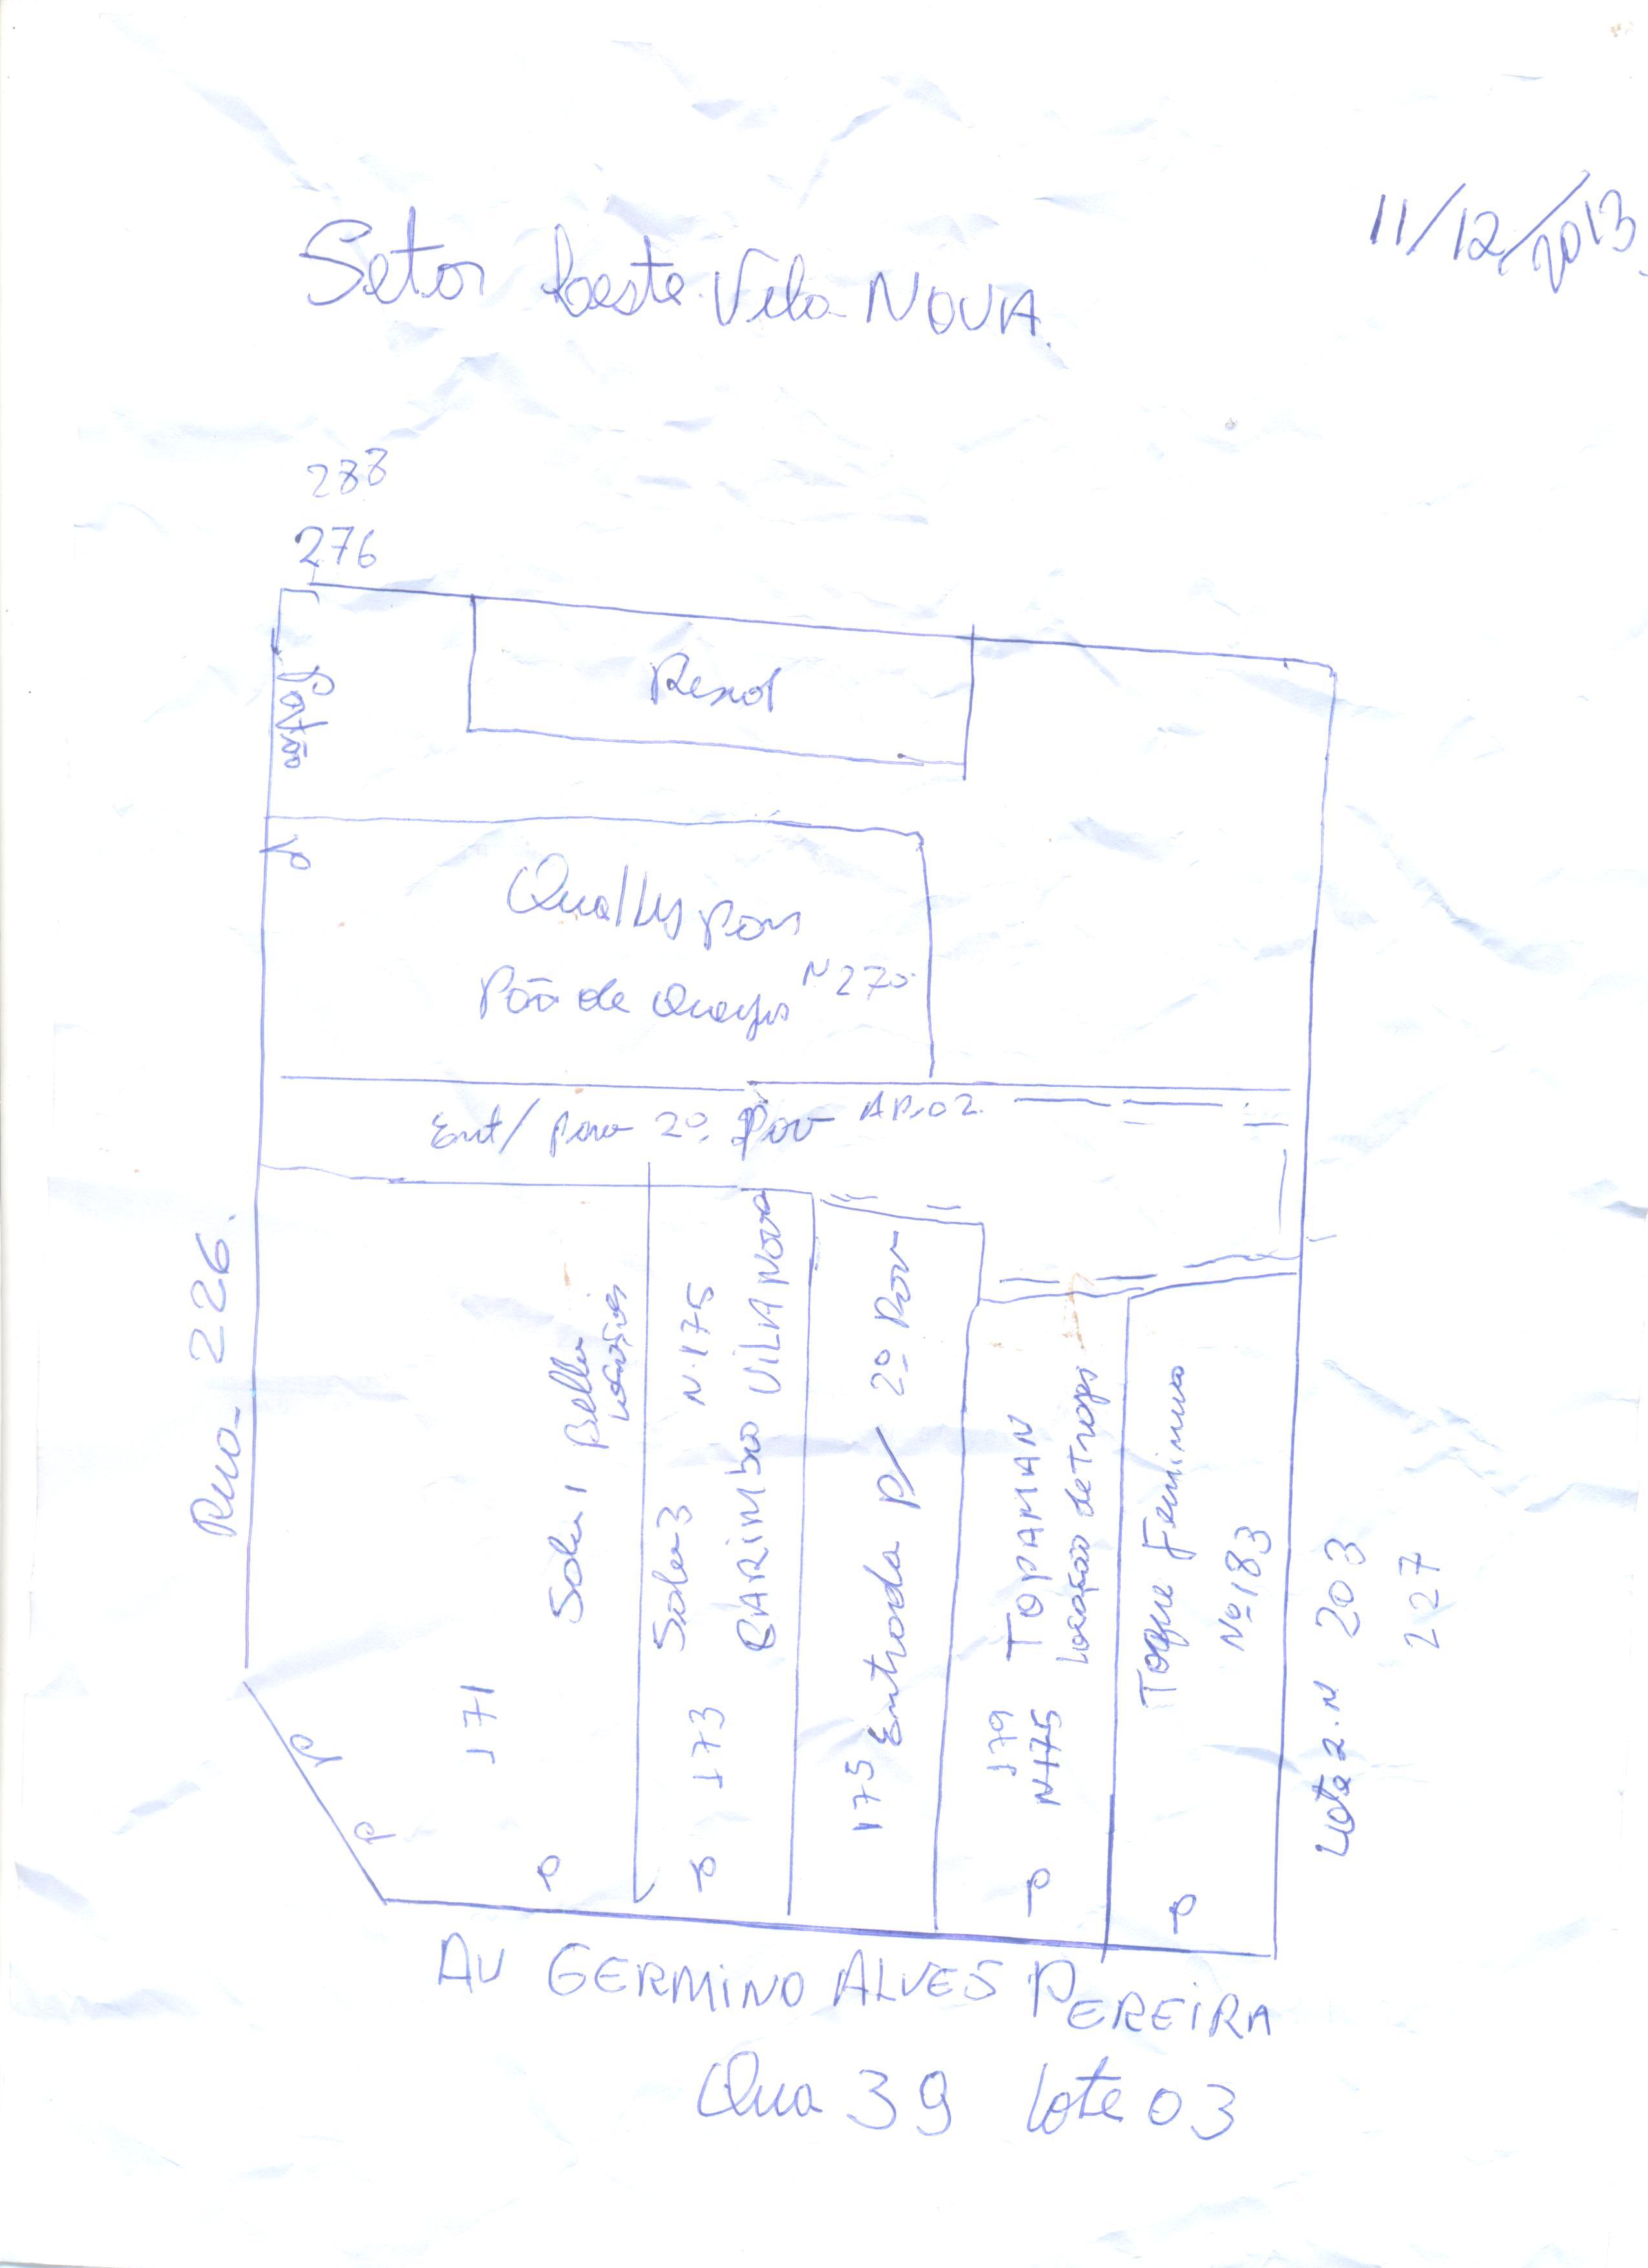 11/12/2013.
Setor Leste Vila NOVA.
288
276
Portão
Resid
Quallypan
Pão de Queijo N 270
Ent/ para 2º Pav AP.02.
Rua 226.
171
Sala 1 Bella
173 Sala 3 N.175
CARIMBO VILA NOVA
175 Entrada P/ 2º Pav
179 TOPAMAN
N175 Locação de Trajes
Toque Feminino
Nº 183
Lote 2. N 203
227
AV GERMINO ALVES PEREIRA
Qua 39 Lote 03